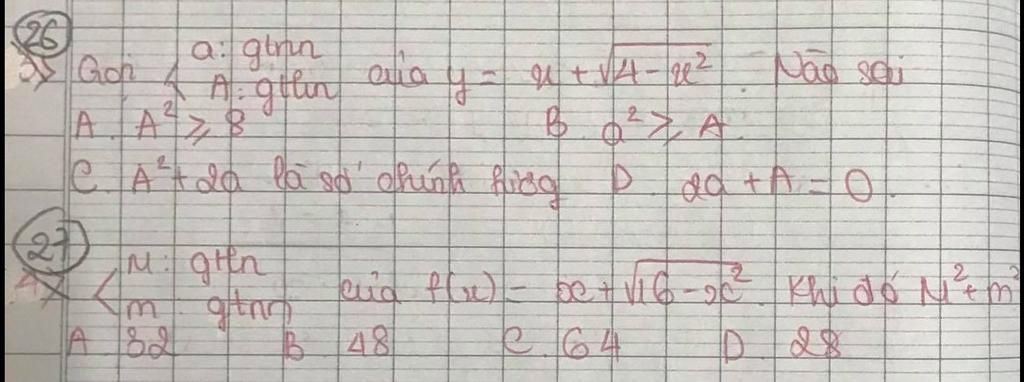 26
Gọi { a: gtnn
A: gtln của y = x + √(4 - x²). Nào sai
A. A² ≥ 8 B. a² ≥ A.
C. A² + 2a là số chính phương D. 2a + A = 0
27
{ M: gtln
m: gtnn của f(x) = x + √(16 - x²). Khi đó M² + m²
A 32 B. 48 C. 64 D. 28